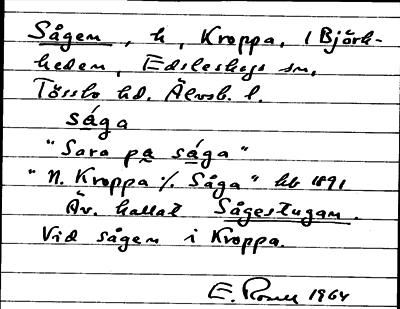 Sågen, h, Kroppa, (Björk-
heden, Edsleskogs sn,
Tössbo hd. Älvsb. l.
såga
"Sara på såga"
"N. Kroppa %. Såga" hb 1891
Äv. kallat Sågestugan.
Vid sågen i Kroppa.
E. 1964